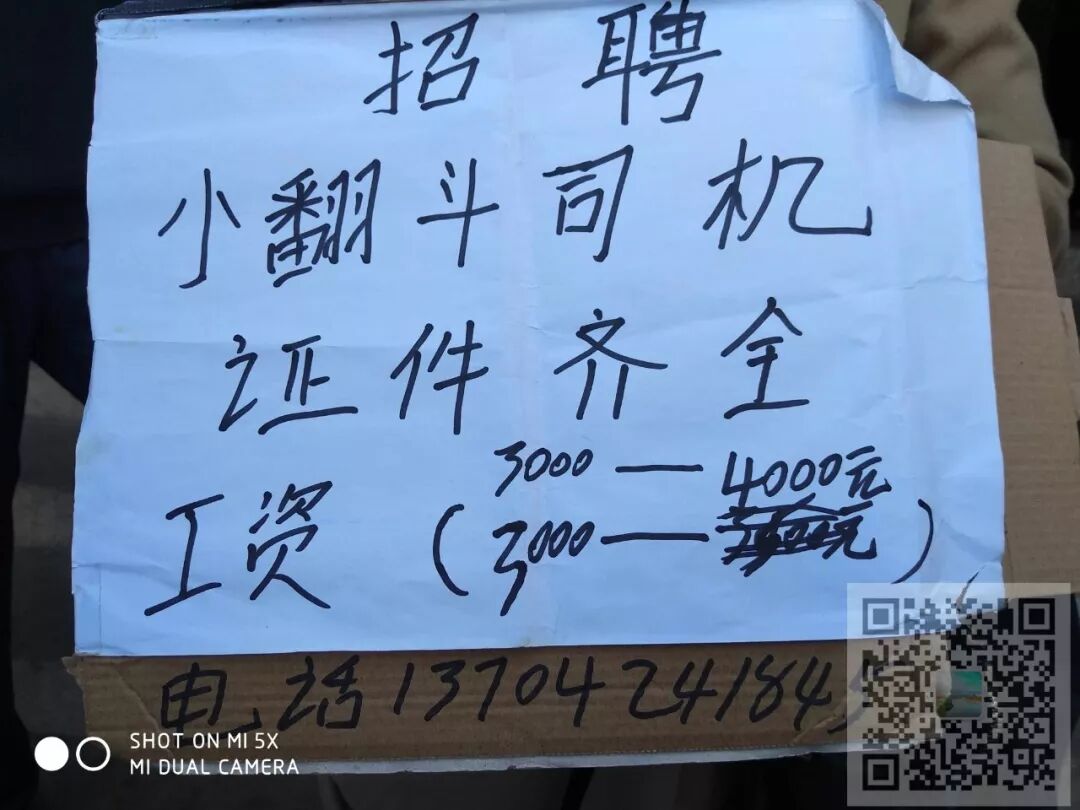 招聘
小翻斗司机
证件齐全
3000—4000元
工资(3000—)
电话1370424184
SHOT ON MI 5X
MI DUAL CAMERA